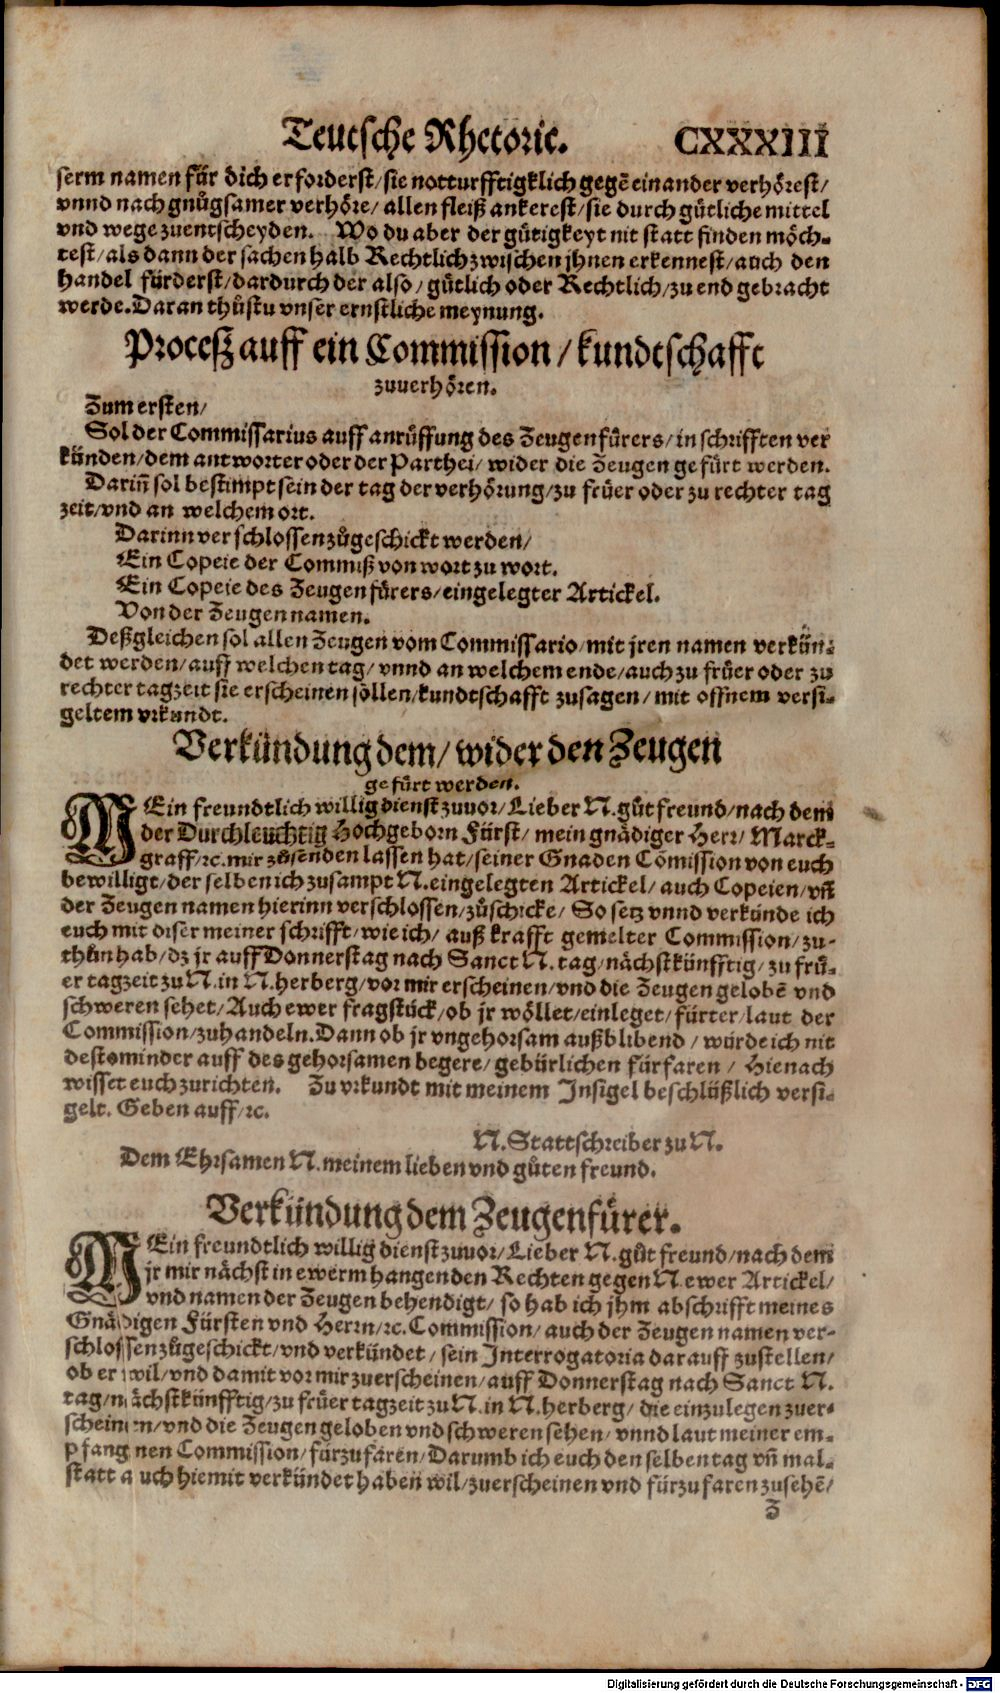 Teutsche Rhetoric. CXXXIII
serm namen für dich erforderst/ sie notturfftigklich gegē einander verhörest/
vnnd nach gnůgsamer verhöre/ allen fleiß ankerest/ sie durch gůtliche mittel
vnd wege zuentscheyden. Wo du aber der gůtigkeyt nit statt finden möch-
test/ als dann der sachen halb Rechtlich zwischen jhnen erkennest/ auch den
handel fürderst/ dardurch der also/ gůtlich oder Rechtlich/ zu end gebracht
werde. Daran thůstu vnser ernstliche meynung.
Proceß auff ein Commission/ kundtschafft
zuuerhören.
Zum ersten/
Sol der Commissarius auff anrůffung des Zeugenfürers/ in schrifften ver
künden/ dem antworter oder der Parthei/ wider die Zeugen gefürt werden.
Dariñ sol bestimpt sein der tag der verhörung/ zu früer oder zu rechter tag
zeit/ vnd an welchem ort.
Darinn verschlossen zůgeschickt werden/
Ein Copeie der Commiß von wort zu wort.
Ein Copeie des Zeugenfürers/ eingelegter Artickel.
Von der Zeugen namen.
Deßgleichen sol allen Zeugen vom Commissario/ mit jren namen verkün-
det werden/ auff welchen tag/ vnnd an welchem ende/ auch zu früer oder zu
rechter tagzeit sie erscheinen söllen/ kundtschafft zusagen/ mit offnem versi-
geltem vrkundt.
Verkündung dem/ wider den Zeugen
gefürt werden.
MEin freundtlich willig dienst zuuor/ Lieber N. gůt freund/ nach dem
der Durchleuchtig Hochgeborn Fürst/ mein gnädiger Herr/ Marck-
graff/ ꝛc. mir zůsenden lassen hat/ seiner Gnaden Cōmission von euch
bewilligt/ der selben ich zusampt N. eingelegten Artickel/ auch Copeien/ vñ
der Zeugen namen hierinn verschlossen/ zůschicke/ So setz vnnd verkünde ich
euch mit diser meiner schrifft/ wie ich/ auß krafft gemelter Commission/ zu-
thůn hab/ dz jr auff Donnerstag nach Sanct N. tag/ nächstkünfftig/ zu frü-
er tagzeit zu N. in N. herberg/ vor mir erscheinen/ vnd die Zeugen gelobē vnd
schweren sehet/ Auch ewer fragstück/ ob jr wöllet/ einleget/ fürter/ laut der
Commission/ zuhandeln. Dann ob jr vngehorsam außblibend/ würde ich nit
destominder auff des gehorsamen begere/ gebürlichen fürfaren/ Hienach
wisset euch zurichten. Zu vrkundt mit meinem Insigel beschlüßlich versi-
gelt. Geben auff/ ꝛc.
N. Stattschreiber zu N.
Dem Ehrsamen N. meinem lieben vnd gůten freund.
Verkündung dem Zeugenfürer.
MEin freundtlich willig dienst zuuor/ Lieber N. gůt freund/ nach dem
jr mir nächst in ewerm hangenden Rechten gegen N. ewer Artickel/
vnd namen der Zeugen behendigt/ so hab ich jhm abschrifft meines
Gnädigen Fürsten vnd Herrn/ ꝛc. Commission/ auch der Zeugen namen ver-
schlossen zůgeschickt/ vnd verkündet/ sein Interrogatoria darauff zustellen/
ob er wil/ vnd damit vor mir zuerscheinen/ auff Donnerstag nach Sanct N.
tag/ nächstkünfftig/ zu früer tagzeit zu N. in N. herberg/ die einzulegen zuer-
scheinen/ vnd die Zeugen geloben vnd schweren sehen/ vnnd laut meiner em-
pfangnen Commission/ fürzufaren/ Darumb ich euch den selben tag vñ mal-
statt auch hiemit verkündet haben wil/ zuerscheinen vnd fürzufaren zusehē/
Z
Digitalisierung gefördert durch die Deutsche Forschungsgemeinschaft - DFG